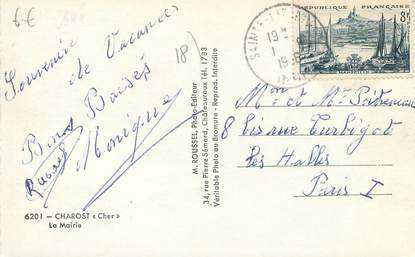 6€
18)
Souvenir
de Vacances
Bons Baisers
Monique
6201 - CHAROST « Cher »
La Mairie
M. ROUSSEL, Photo-Editeur
34, rue Pierre Sémard, Châteauroux Tél. 1793
Véritable Photo au Bromure - Reprod. Interdite
REPUBLIQUE FRANÇAISE
8F
MARSEILLE
Mon et Me
8 bis rue Turbigot
Les Halles
Paris I